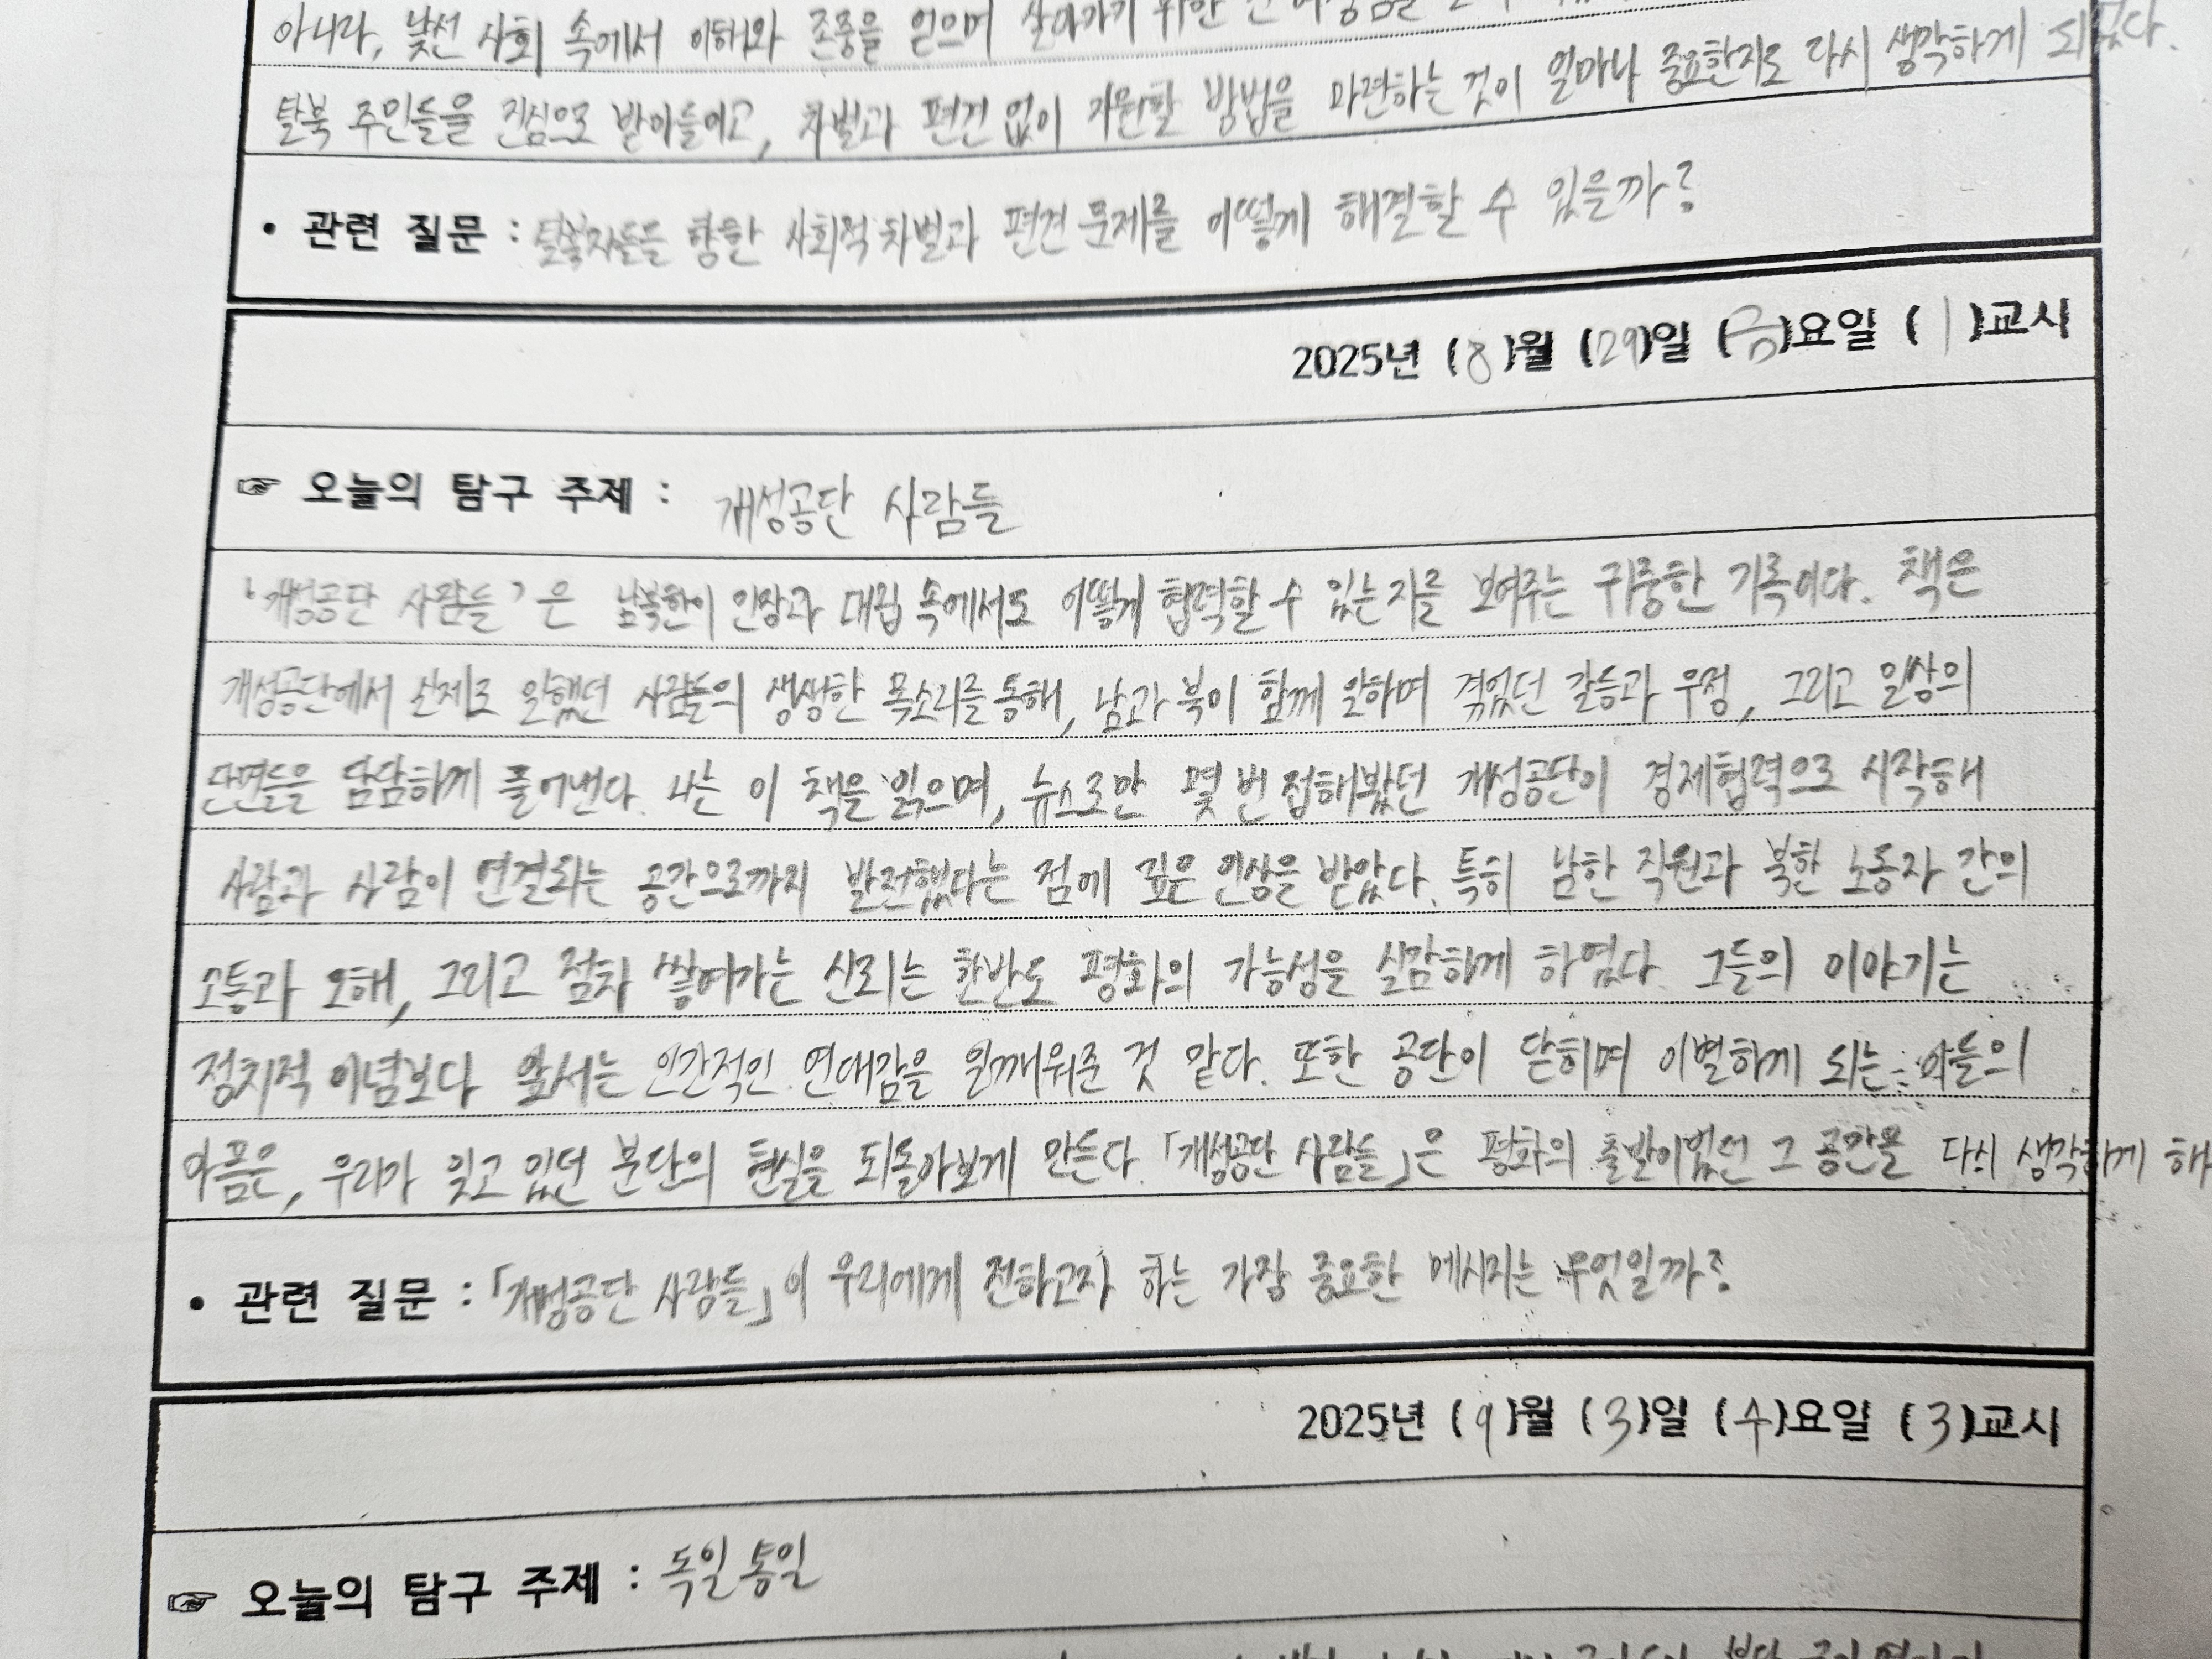 아니라, 낯선 사회 속에서 이해와 존중을 얻으며 살아가기 위한
탈북 주민들을 진심으로 받아들이고, 차별과 편견 없이 지원할 방법을 마련하는 것이 얼마나 중요한지도 다시 생각하게 되었다.
• 관련 질문 : 탈북자들을 향한 사회적 차별과 편견 문제를 어떻게 해결할 수 있을까?
2025년 (8)월 (29)일 (금)요일 (1)교시
☞ 오늘의 탐구 주제 : 개성공단 사람들
'개성공단 사람들'은 남북한이 긴장과 대립 속에서도 어떻게 협력할 수 있는지를 보여주는 귀중한 기록이다. 책은
개성공단에서 실제로 일했던 사람들의 생생한 목소리를 통해, 남과 북이 함께 일하며 겪었던 갈등과 우정, 그리고 일상의
단면들을 담담하게 풀어낸다. 나는 이 책을 읽으며, 뉴스로만 몇 번 접해봤던 개성공단이 경제협력으로 시작해
사람과 사람이 연결되는 공간으로까지 발전했다는 점에 깊은 인상을 받았다. 특히 남한 직원과 북한 노동자 간의
소통과 오해, 그리고 점차 쌓여가는 신뢰는 한반도 평화의 가능성을 실감하게 하였다. 그들의 이야기는
정치적 이념보다 앞서는 인간적인 연대감을 일깨워준 것 같다. 또한 공단이 닫히며 이별하게 되는 이들의
아픔은, 우리가 잊고 있던 분단의 현실을 되돌아보게 만든다. 「개성공단 사람들」은 평화의 출발이었던 그 공간을 다시 생각하게 해
• 관련 질문 : 「개성공단 사람들」이 우리에게 전하고자 하는 가장 중요한 메시지는 무엇일까?
2025년 (9)월 (3)일 (수)요일 (3)교시
☞ 오늘의 탐구 주제 : 독일 통일